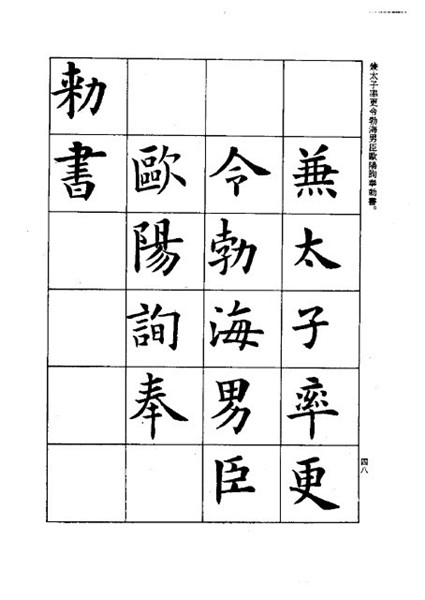 兼太子率更令勃海男臣歐陽詢奉勅書。
兼太子率更
令勃海男臣
歐陽詢奉
勅書
四八